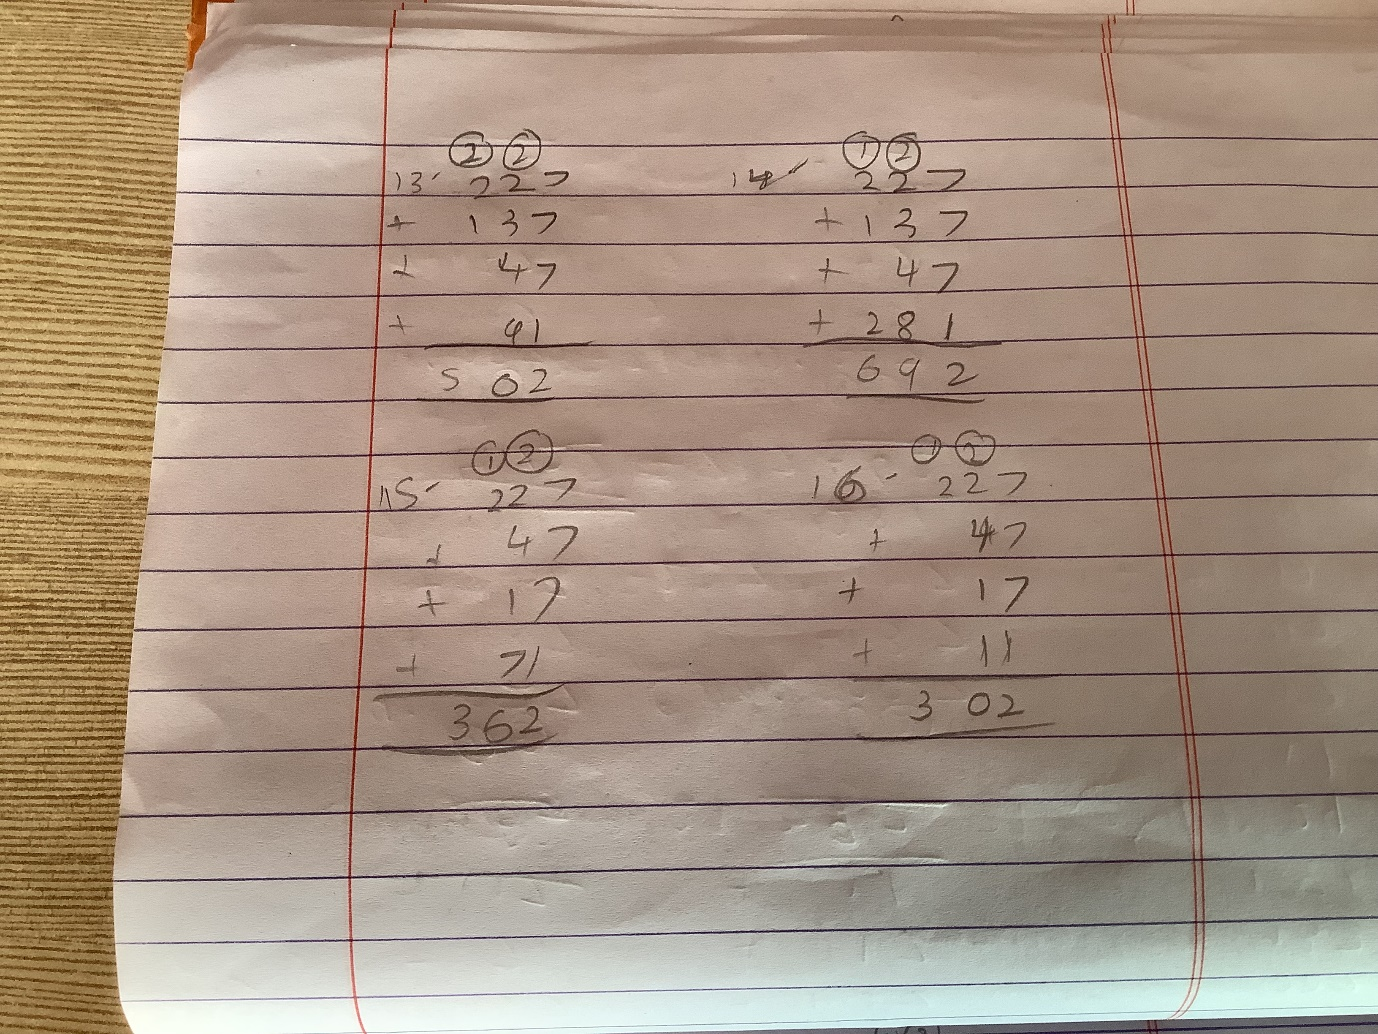 2 2
13- 227
+ 137
+ 47
+ 91
502
1 2
14- 227
+ 137
+ 47
+ 281
692
1 2
15- 227
+ 47
+ 17
+ 71
362
1 2
16- 227
+ 47
+ 17
+ 11
302